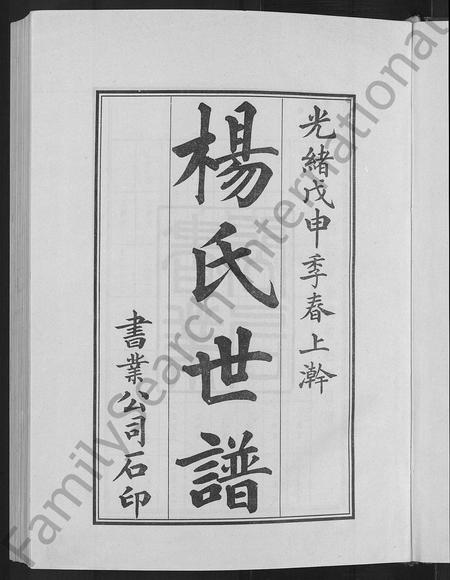 光緒戊申季春上澣
楊氏世譜
書業公司石印
FamilySearch International